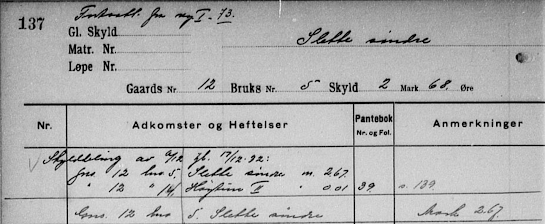 137
Fortsatt. fra reg I - 73.
Gl. Skyld
Matr. Nr.
Løpe Nr.
Slette søndre
Gaards Nr. 12 Bruks Nr. 5 Skyld 2 Mark 68 Øre
Nr.
Adkomster og Heftelser
Pantebok
Nr. og Fol.
Anmerkninger
Skylddeling av 9/12 gl. 17/12-22:
gns. 12 bns 5. Slette søndre m. 2.67.
" 12 " 14 II " 0.01 39 s. 139
Gns. 12 bns 5. Slette søndre Mark 2.67.